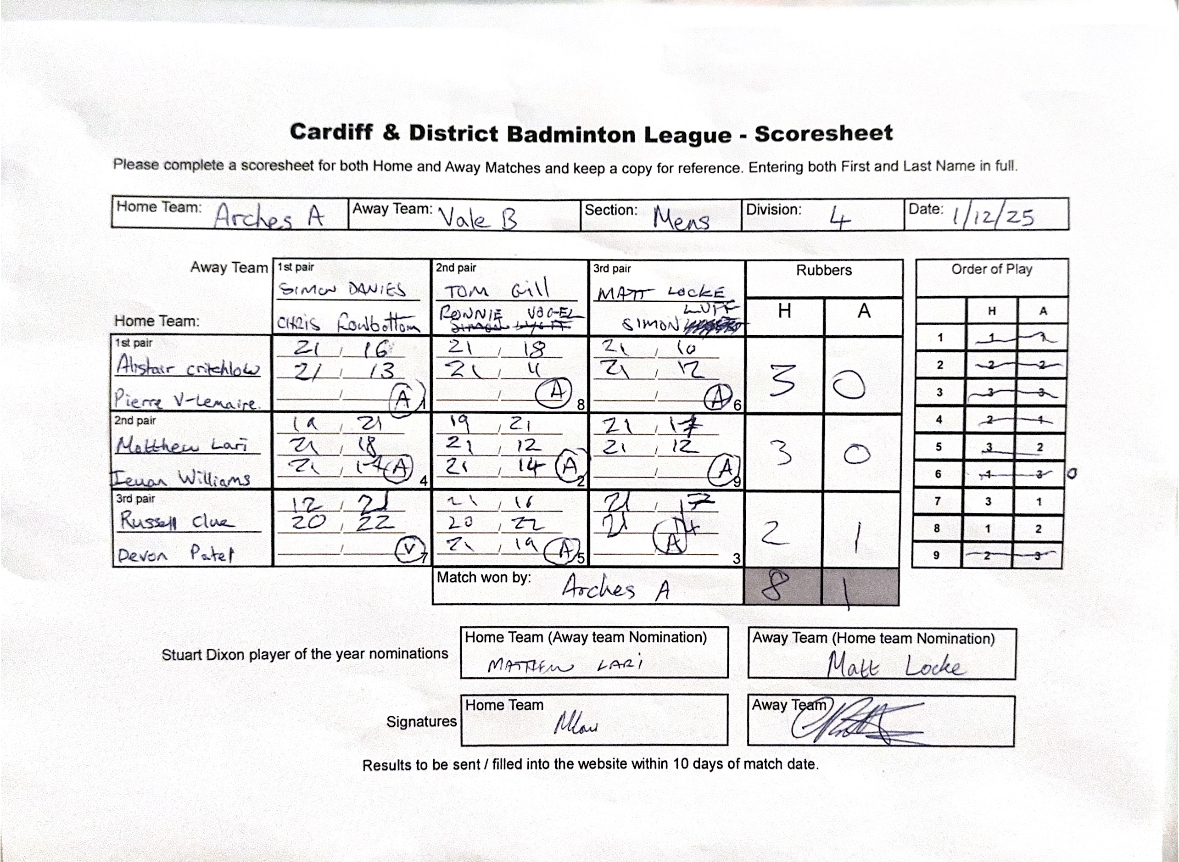 Cardiff & District Badminton League - Scoresheet
Please complete a scoresheet for both Home and Away Matches and keep a copy for reference. Entering both First and Last Name in full.
Home Team: Arches A Away Team: Vale B Section: Mens Division: 4 Date: 1/12/25
Away Team 1st pair 2nd pair 3rd pair Rubbers Order of Play
SIMON DAVIES TOM Gill MATT LOCKE
LUFF
Home Team: CHRIS Rowbottom RONNIE VOGEL SIMON H A H A
1st pair 21 , 16 21 , 18 21 , 10
Alistair critchlow 21 / 13 21 , 4 21 , 12 3 0
Pierre V-Lemaire. / A 1 / A 8 / A 6
2nd pair 19 , 21 19 , 21 21 , 17
Matthew Lari 21 , 18 21 , 12 21 , 12 3 0
Ieuan Williams 21 , 17 A 4 21 , 14 A 2 / A 9
3rd pair 12 , 21 21 , 16 21 , 17
Russell Clue 20 , 22 20 , 22 21 , 14 2 1
Devon Patel / V 7 21 , 19 A 5 A 3
1 1 1
2 2 2
3 3 3
4 2 1
5 3 2
6 1 3 0
7 3 1
8 1 2
9 2 3
Match won by: Arches A 8 1
Stuart Dixon player of the year nominations
Home Team (Away team Nomination)
MATTHEW LARI
Away Team (Home team Nomination)
Matt Locke
Signatures
Home Team
Away Team
Results to be sent / filled into the website within 10 days of match date.